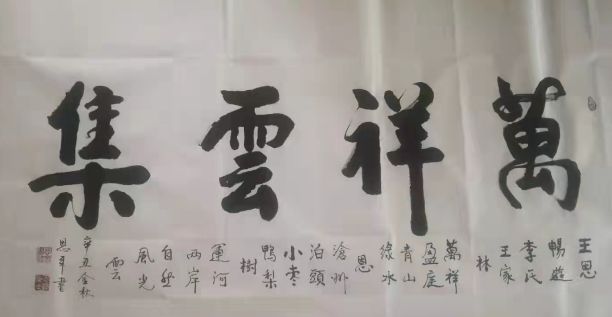 萬祥雲集
王恩
暢遊
李氏
王家
林
萬祥
盈庭
青山
綠水
恩
滄州
泊頭
小棗
鴨梨
樹
運河
兩岸
自然
風光
雲
辛丑金秋
恩軍書